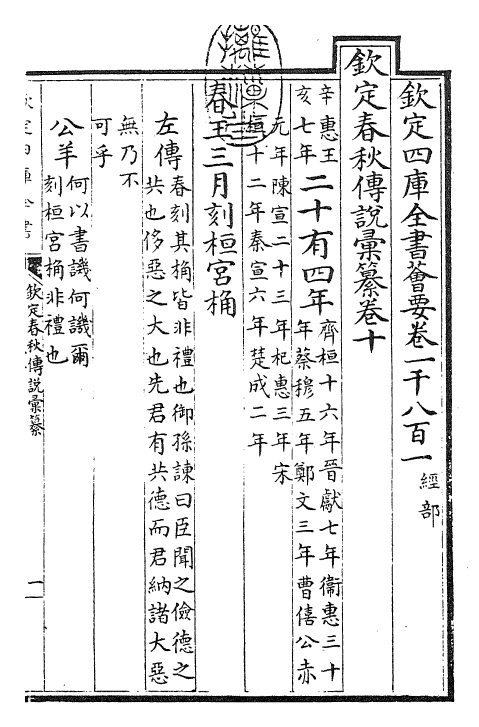 欽定四庫全書薈要卷一千八百一 經部
欽定春秋傳說彙纂卷十
辛惠王
亥七年
二十有四年
齊桓十六年晉獻七年衞惠三十
年蔡穆五年鄭文三年曹僖公赤
元年陳宣二十三年杞惠三年宋
桓十二年秦宣六年楚成二年
春王三月刻桓宮桷
左傳
春刻其桷皆非禮也御孫諫曰臣聞之儉德之
共也侈惡之大也先君有共德而君納諸大惡
無乃不
可乎
公羊
何以書譏何譏爾
刻桓宮桷非禮也
欽定四庫全書
欽定春秋傳說彙纂
一